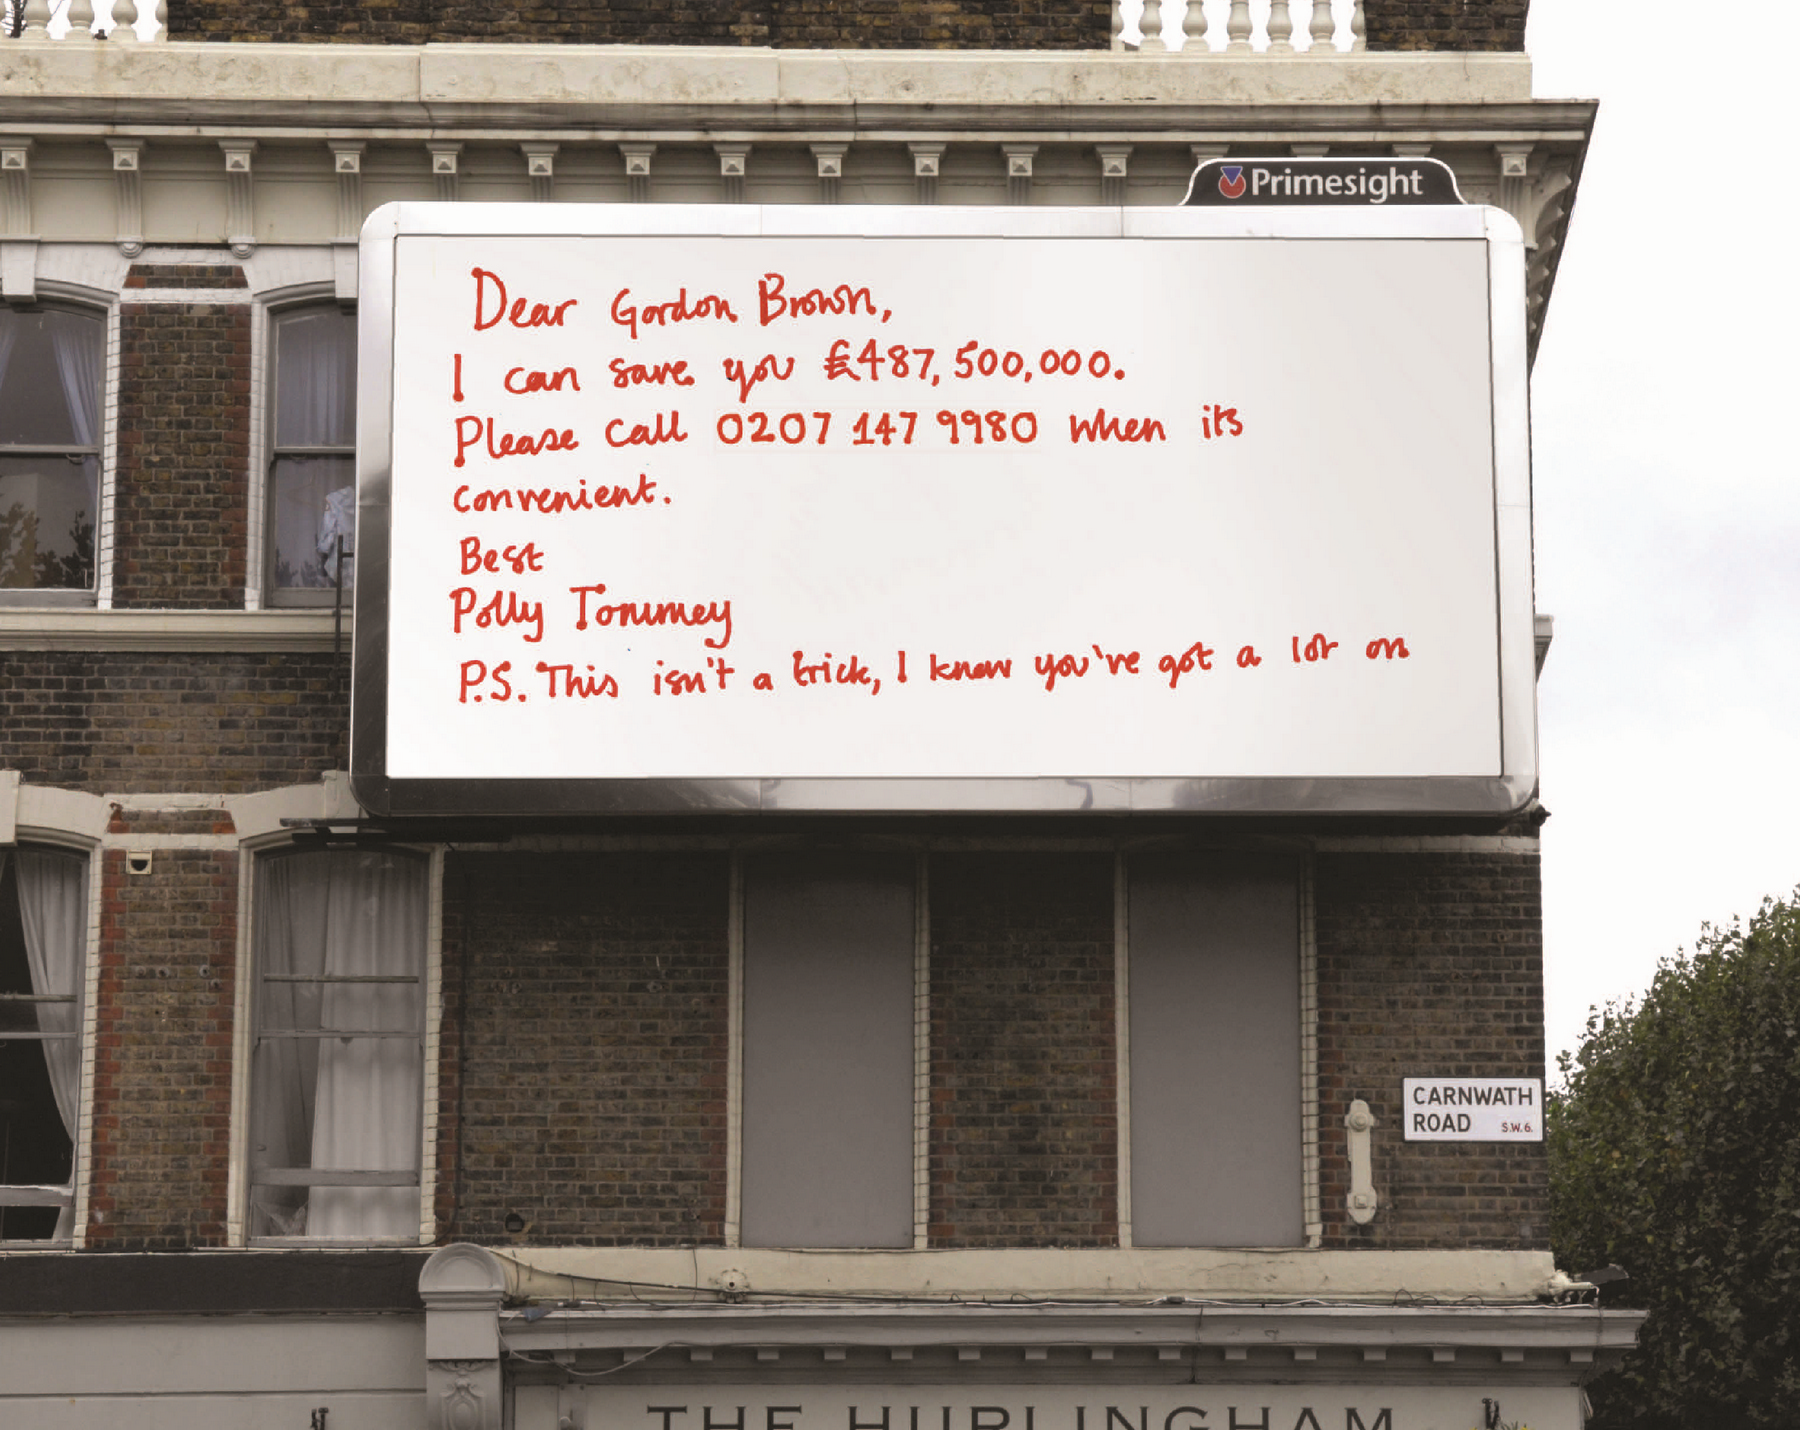 Primesight
Dear Gordon Brown,
I can save you £487,500,000.
Please call 0207 147 9980 when its
convenient.
Best
Polly Tommey
P.S. This isn't a trick, I know you've got a lot on
CARNWATH
ROAD S.W.6.
THE HURLINGHAM